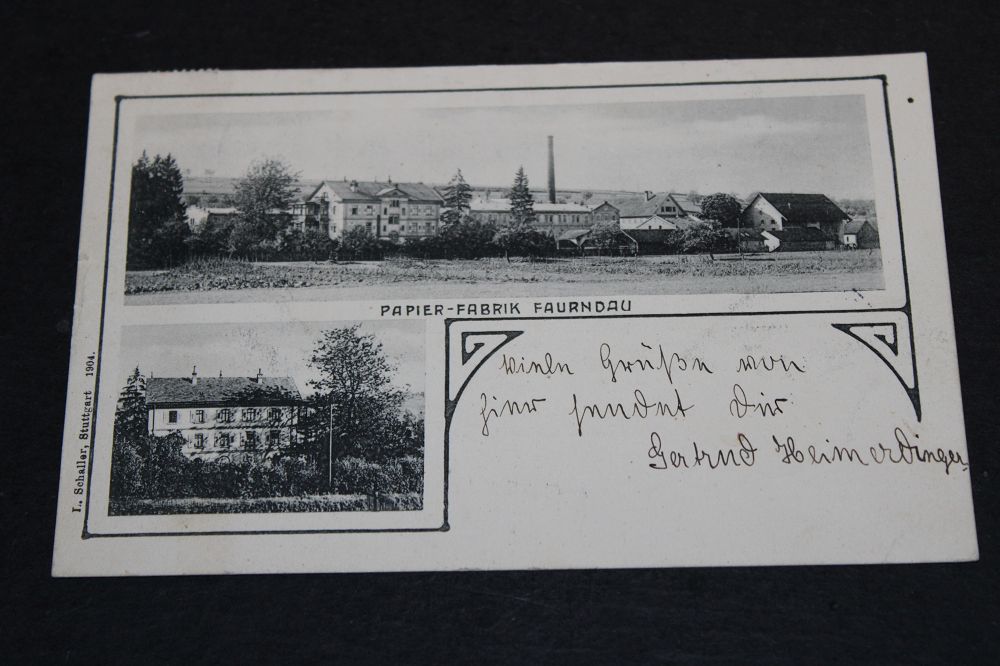 PAPIER-FABRIK FAURNDAU
Viele Grüße von
hier sendet Dir
Gertrud Heimerdinger.
L. Schaller, Stuttgart 1904.